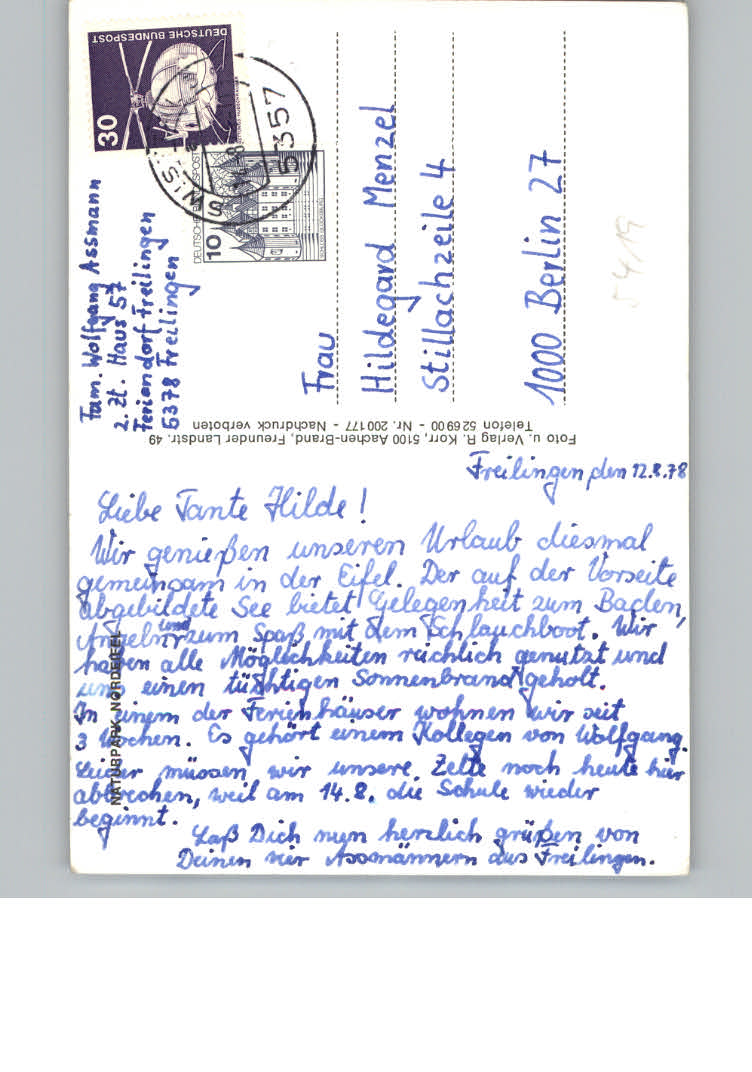 DEUTSCHE BUNDESPOST
30
DEUTSCHE BUNDESPOST
10
5357
Fam. Wolfgang Assmann
2. Zt. Haus 57
Feriendorf Freilingen
5378 Freilingen
Frau
Hildegard Menzel
Stillachzeile 4
1000 Berlin 27
54/19
Foto u. Verlag R. Korr, 5100 Aachen-Brand, Freunder Landstr. 49
Telefon 52 69 00 - Nr. 200 177 - Nachdruck verboten
NATURPARK NORDEIFEL
Freilingen, den 12.8.78
Liebe Tante Hilde!
Wir genießen unseren Urlaub diesmal
gemeinsam in der Eifel. Der auf der Vorseite
abgebildete See bietet Gelegenheit zum Baden,
Angeln und zum Spaß mit dem Schlauchboot. Wir
haben alle Möglichkeiten reichlich genutzt und
uns einen tüchtigen Sonnenbrand geholt.
In einem der Ferienhäuser wohnen wir seit
3 Wochen. Es gehört einem Kollegen von Wolfgang.
Leider müssen wir unsere Zelte noch heute hier
abbrechen, weil am 14.8. die Schule wieder
beginnt.
Laß Dich nun herzlich grüßen von
Deinen vier Assmännern aus Freilingen.